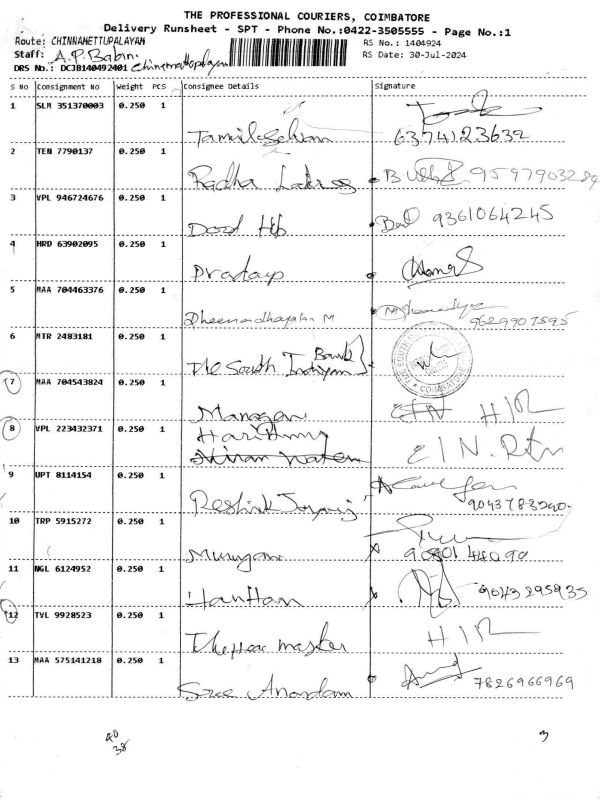 THE PROFESSIONAL COURIERS, COIMBATORE
Delivery Runsheet - SPT - Phone No.:0422-3505555 - Page No.:1
Route: CHINNAMETTUPALAYAM
RS No.: 1404924
Staff: A.P. Babin.
RS Date: 30-Jul-2024
DRS No.: DCJB140492401
S No Consignment No Weight PCS Consignee Details Signature
1 SLM 351370003 0.250 1 Tamil Selvan 6374123632
2 TEN 7790137 0.250 1 Radha
3 VPL 946724676 0.250 1 9361064245
4 HRD 63902095 0.250 1 Pratap
5 MAA 704463376 0.250 1 Dheenadhayalan M 9629907595
6 MTR 2483181 0.250 1 The South Indiyan Bank
COIMBATORE
7 MAA 704543824 0.250 1 Manager H/R
8 VPL 223432371 0.250 1 E/N. Rtn
9 UPT 8114154 0.250 1
10 TRP 5915272 0.250 1 Murugan
11 NGL 6124952 0.250 1 Hariharan 9043295935
12 TVL 9928523 0.250 1 master H/R
13 MAA 575141218 0.250 1 Sree Anandam 7826966969
40
38
3